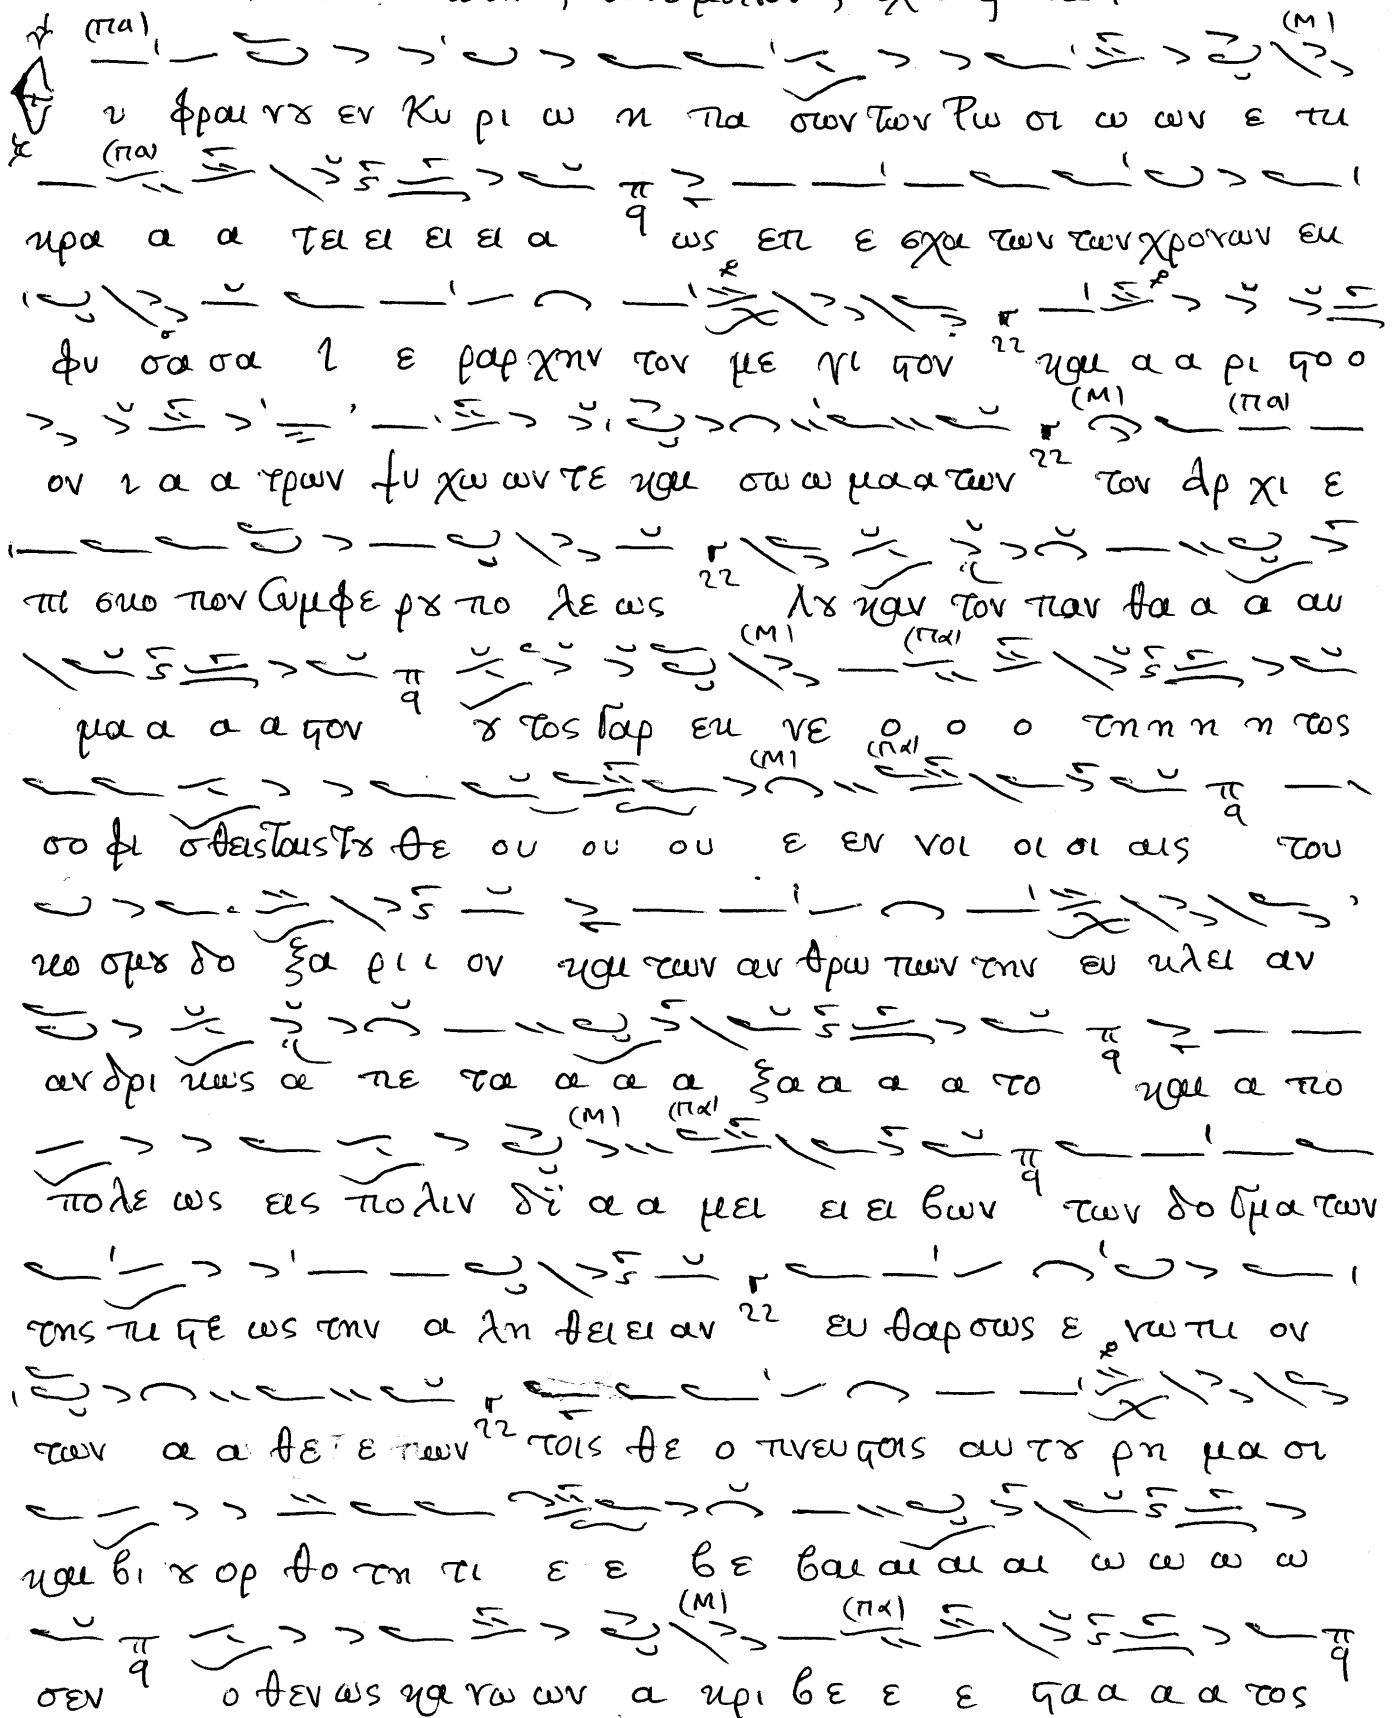 (πα) (Μ)
υ φραι νȣ εν Κυ ρι ω η πα σων των Ρω σι ω ων ε πι
(πα)
κρα α α τει ει ει ει α π q ως επ ε σχα των των χρονων εκ
φυ σα σα Ι ε ραρ χην τον με γι ϛον και α α ρι ϛο ο
(Μ) (πα)
ον ι α α τρων ψυ χω ων τε και σω ω μα α των τον Αρ χι ε
πι σκο πον Συμφε ρȣ πο λε ως Λȣ καν τον παν θα α α αυ
(Μ) (πα)
μα α α α ϛον π q ȣ τος γαρ εκ νε ο ο ο τη η η η τος
(Μ) (πα)
σο φι σθεις ταις τȣ θε ου ου ου ε εν νοι οι οι αις π q του
κο σμȣ δο ξα ρι ι ον και των αν θρω πων την ευ κλει αν
αν δρι κως α πε τα α α α ξα α α α το π q και α πο
(Μ) (πα)
πολε ως εις πο λιν δι α α μει ει ει βων π q των δο γμα των
της πι ϛε ως την α λη θει ει αν ευ θαρ σως ε νω πι ον
των α α θε ε των τοις θε ο πνευ ϛοις αυ τȣ ρη μα σι
και βι ȣ ορ θο τη τι ε ε βε βαι αι αι αι ω ω ω ω
(Μ) (πα)
σεν π q ο θεν ως κα νω ων α κρι βε ε ε ϛα α α α τος π q